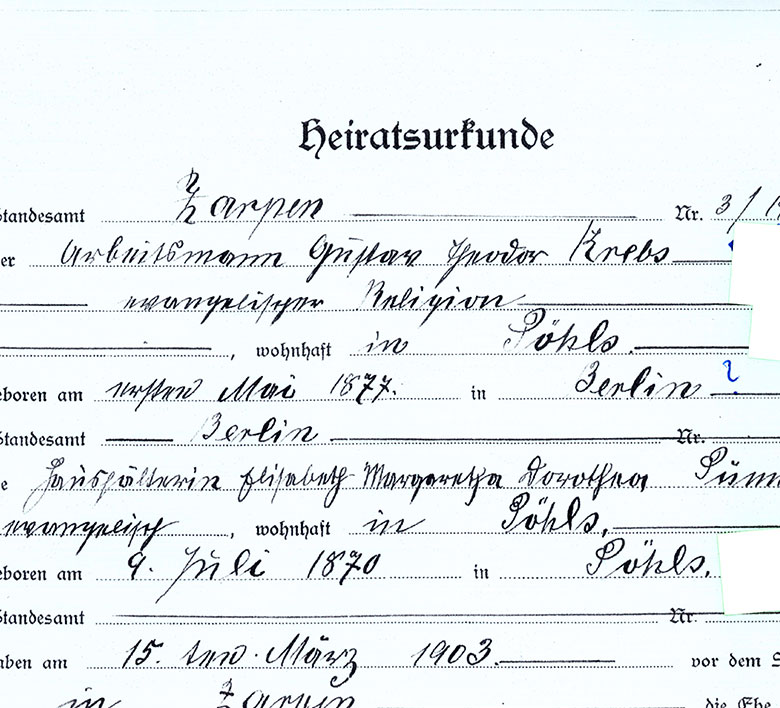 Heiratsurkunde
Standesamt Zarpen Nr. 3/1
er Arbeitsmann Gustav Theodor Krebs
evangelischer Religion
, wohnhaft in Pöhls.
eboren am ersten Mai 1877. in Berlin ?
Standesamt Berlin Nr.
e Haushälterin Elisabeth Margaretha Dorothea
evangelisch, wohnhaft in Pöhls,
eboren am 9. Juli 1870 in Pöhls.
Standesamt Nr.
aben am 15. ten März 1903. vor dem S
in Zarpen die Ehe